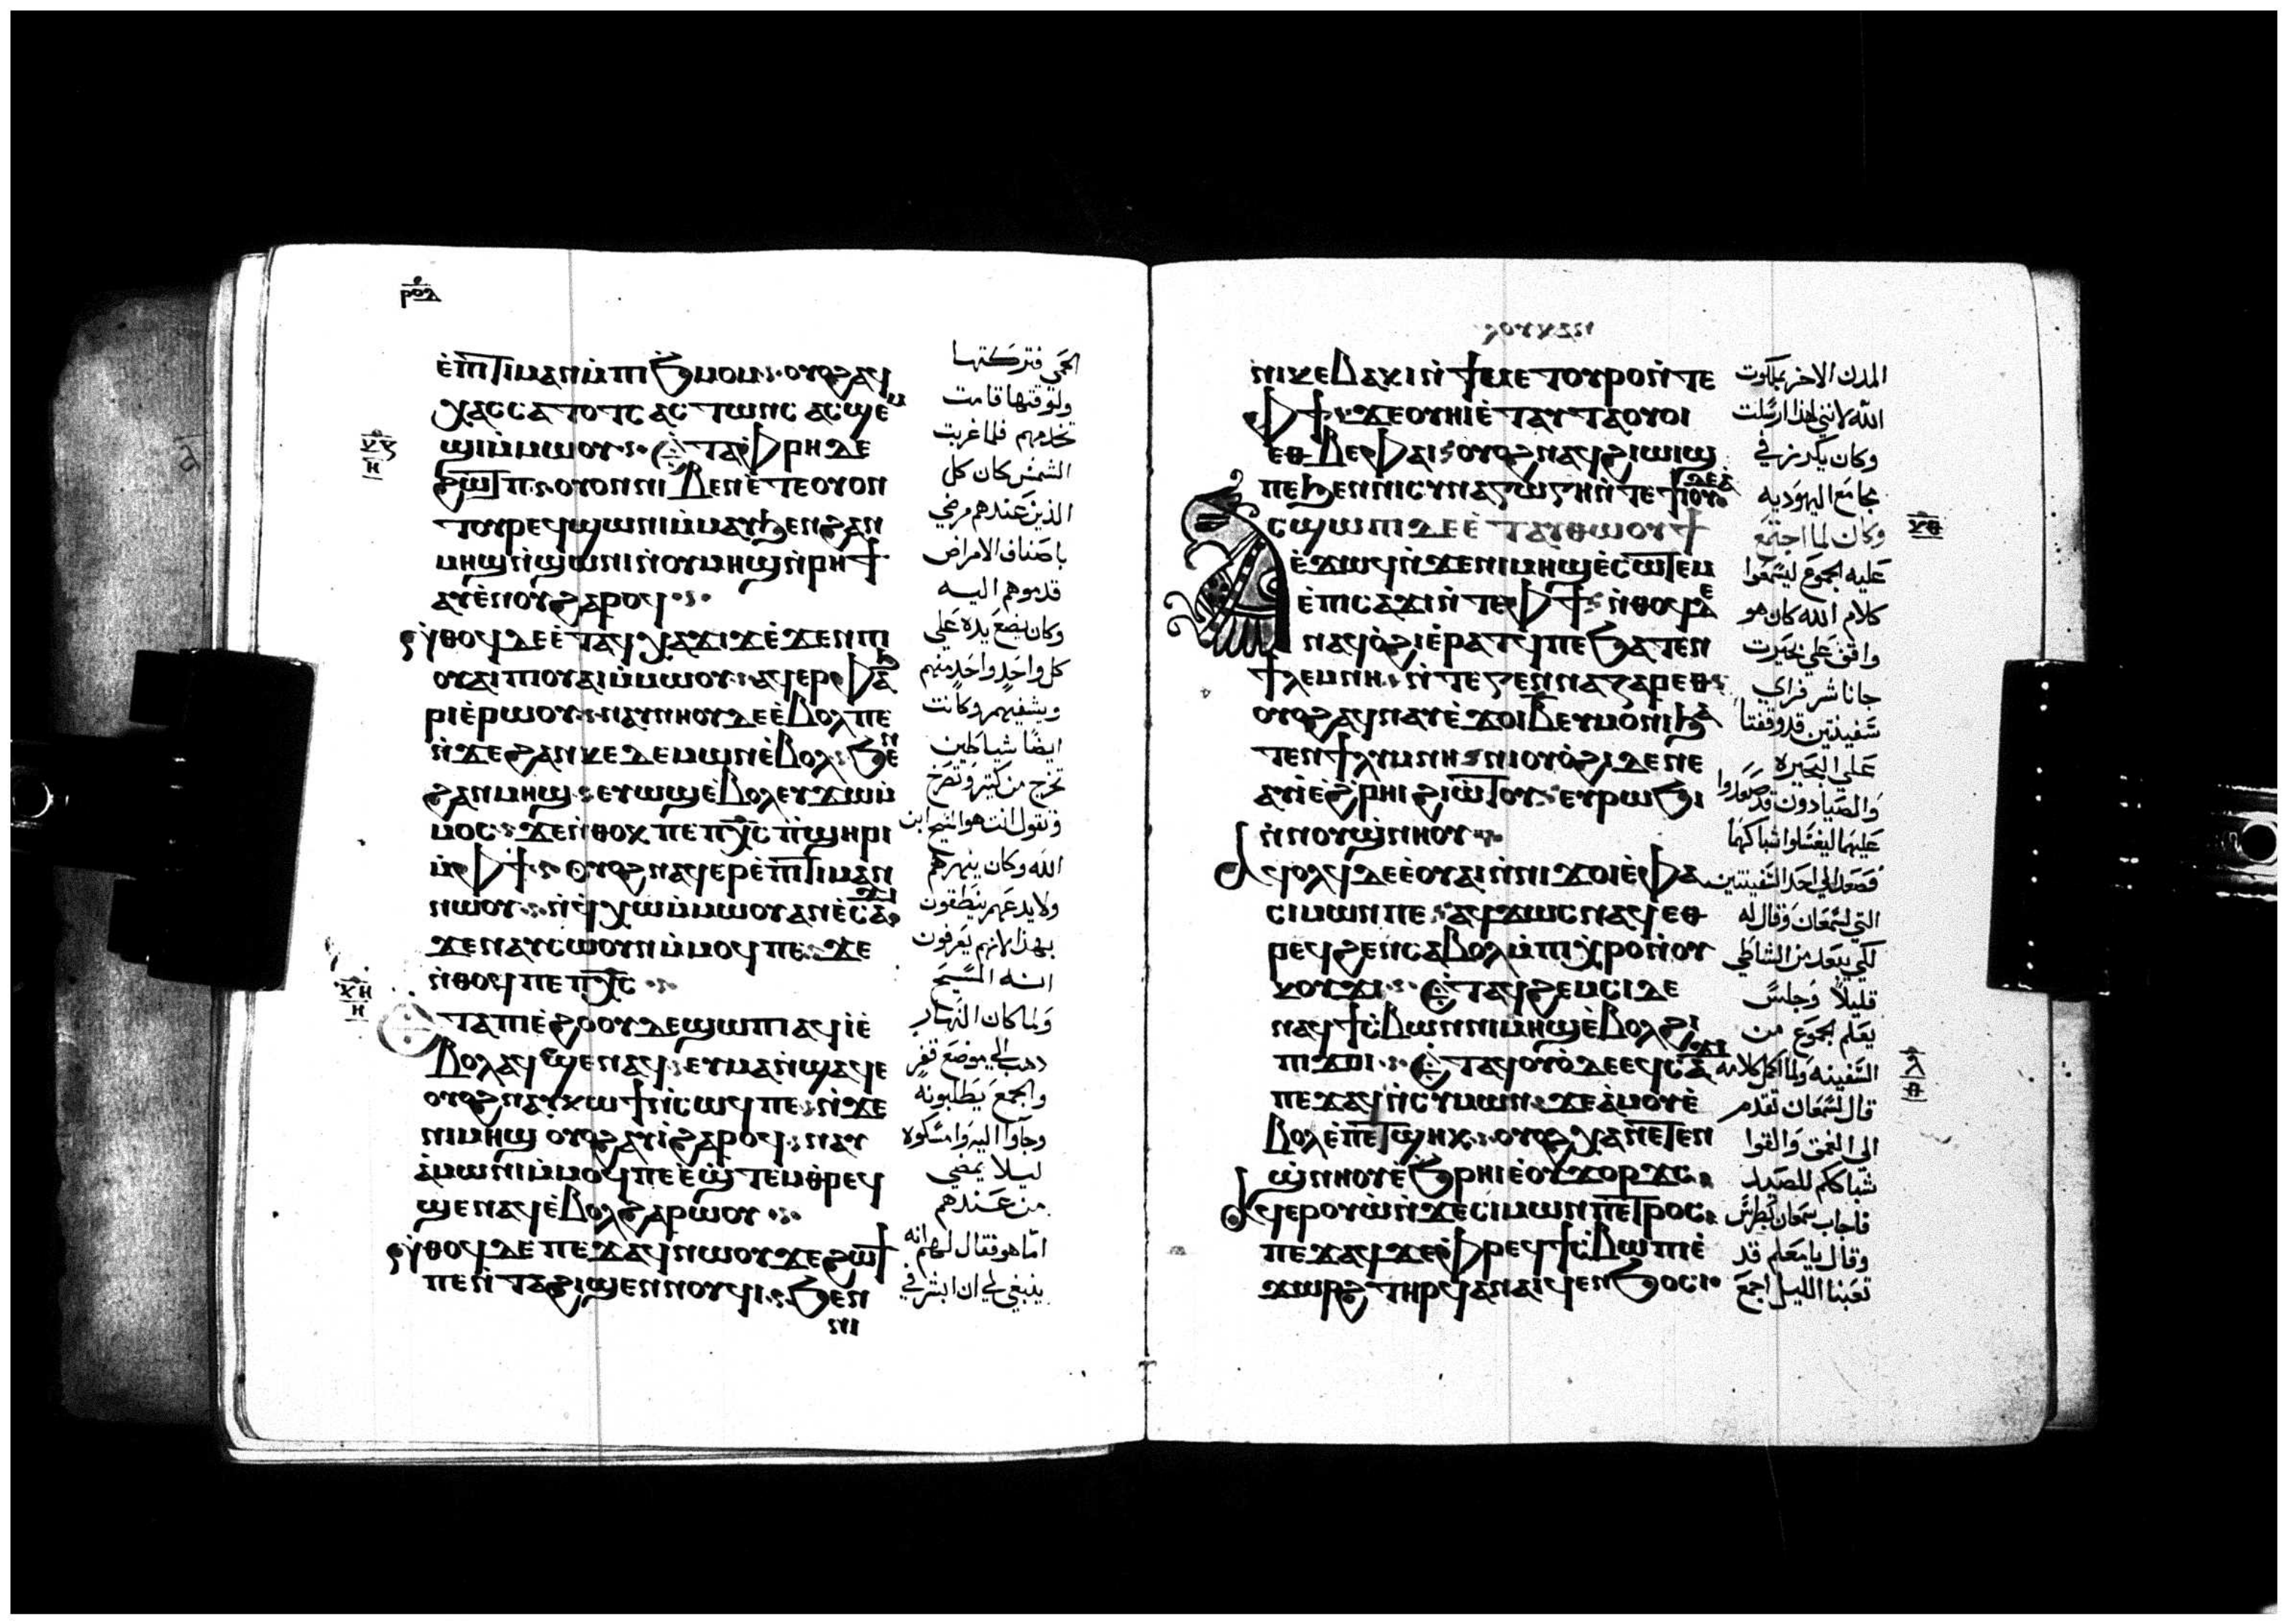 ⲣⲟⲇ
ⲉ̀ⲡⲓⲧⲓⲙⲁⲛ ⲙ̀ⲡⲓϧⲙⲟⲙ ⲟⲩⲟϩ ⲁϥ
ⲭⲁⲥ ⲥⲁⲧⲟⲧⲥ ⲁⲥⲧⲱⲛⲥ ⲁⲥϣⲉⲙ
ϣⲓ ⲙ̀ⲙⲱⲟⲩ ⲉ̀ⲧⲁ ⲫⲣⲏ ⲇⲉ
ϩⲱⲧⲡ ⲟⲩⲟⲛ ⲛⲓⲃⲉⲛ ⲉ̀ⲧⲉ ⲟⲩⲟⲛ
ⲧⲟⲩ ⲣⲉϥϣⲱⲛⲓ ⲙ̀ⲙⲁⲩ ϧⲉⲛ ϩⲁⲛ
ⲙⲏϣ ⲛ̀ϣⲱⲛⲓ ⲛ̀ⲟⲩⲙⲏϣ ⲛ̀ⲣⲏϯ
ⲁⲩⲉⲛⲟⲩ ϩⲁⲣⲟϥ
ⲛ̀ⲑⲟϥ ⲇⲉ ⲉ̀ⲧⲁϥⲭⲁ ϫⲓϫ ⲉ̀ϫⲉⲛ ⲡⲓ
ⲟⲩⲁⲓ ⲡⲓⲟⲩⲁⲓ ⲙ̀ⲙⲱⲟⲩ ⲁϥⲉⲣⲫⲁϧ
ⲣⲓ ⲉ̀ⲣⲱⲟⲩ ⲛⲁⲩⲛⲏⲟⲩ ⲇⲉ ⲉ̀ⲃⲟⲗ ⲡⲉ
ⲛ̀ϫⲉ ϩⲁⲛⲕⲉⲇⲉⲙⲱⲛ ⲉ̀ⲃⲟⲗ ϧⲉⲛ
ϩⲁⲛⲙⲏϣ ⲉⲩⲱϣ ⲉ̀ⲃⲟⲗ ⲉⲩϫⲱ ⲙ̀
ⲙⲟⲥ ϫⲉ ⲛ̀ⲑⲟⲕ ⲡⲉ ⲡⲭⲥ ⲡ̀ϣⲏⲣⲓ
ⲙ̀ⲫϯ ⲟⲩⲟϩ ⲛⲁϥⲉⲣⲉ̀ⲡⲓⲧⲓⲙⲁⲛ
ⲛⲱⲟⲩ ⲛ̀ϥⲭⲱ ⲙ̀ⲙⲱⲟⲩ ⲁⲛ ⲉ̀ⲥⲁϫⲓ
ϫⲉ ⲛⲁⲩⲥⲱⲟⲩⲛ ⲙ̀ⲙⲟϥ ⲡⲉ ϫⲉ
ⲛ̀ⲑⲟϥ ⲡⲉ ⲡⲭⲥ
ⲉⲧⲁ ⲡⲓⲉ̀ϩⲟⲟⲩ ⲇⲉ ϣⲱⲡⲓ ⲁϥⲓ̀ ⲉ̀
ⲃⲟⲗ ⲁϥϣⲉⲛⲁϥ ⲉⲩⲙⲁ ⲛ̀ϣⲁϥⲉ
ⲟⲩⲟϩ ⲛⲁⲩⲕⲱϯ ⲛ̀ⲥⲱϥ ⲡⲉ ⲛ̀ϫⲉ
ⲛⲓⲙⲏϣ ⲟⲩⲟϩ ⲁⲩⲓ̀ ϩⲁⲣⲟϥ ⲛⲁⲩ
ⲁ̀ⲙⲟⲛⲓ ⲙ̀ⲙⲟϥ ⲡⲉ ⲉ̀ϣⲧⲉⲙⲑⲣⲉϥ
ϣⲉⲛⲁϥ ⲉ̀ⲃⲟⲗ ϩⲁⲣⲱⲟⲩ
ⲛ̀ⲑⲟϥ ⲇⲉ ⲡⲉϫⲁϥ ⲛⲱⲟⲩ ϫⲉ ϩⲱϯ
ⲡⲉ ⲛ̀ⲧⲁϩⲓϣⲉⲛⲛⲟⲩϥⲓ ϧⲉⲛ
ⲛⲓ
الحمي فتركتها
ولوقتها قامت
تخدمهم فلما غربت
الشمس كان كل
الذين عندهم مرضي
باصناف الامراض
قدموهم اليه
وكان يضع يده علي
كل واحد واحد منهم
ويشفيهم وكانت
ايضا شياطين
تخرج من كثير وتصرخ
وتقول انت هو المسيح ابن
الله وكان ينهرهم
ولا يدعهم ينطقون
بهذا لانهم يعرفون
انه المسيح
ولما كان النهار
ذهب الي موضع قفر
والجمع يطلبونه
وجاوا اليه وامسكوه
ليلا يمضي
من عندهم
اما هو فقال لهم انه
ينبغي لي ان ابشر في
ⲗⲟⲩⲕⲁⲛ
ⲛⲓⲕⲉⲃⲁⲕⲓ ⲛ̀ϯⲙⲉⲧⲟⲩⲣⲟ ⲛ̀ⲧⲉ
ⲫϯ ϫⲉ ⲟⲩⲏⲓ ⲉ̀ⲧⲁⲩⲧⲁⲟⲩⲟⲓ
ⲉⲑⲃⲉ ⲫⲁⲓ ⲟⲩⲟϩ ⲛⲁϥϩⲓⲱⲓϣ
ⲡⲉ ϧⲉⲛ ⲛⲓⲥⲩⲛⲁⲅⲱⲅⲏ ⲛ̀ⲧⲉ ϯⲓⲟⲩⲇⲉⲁ
ⲁⲥϣⲱⲡⲓ ⲇⲉ ⲉ̀ⲧⲁⲩⲑⲱⲟⲩϯ
ⲉ̀ϫⲱϥ ⲛ̀ϫⲉ ⲛⲓⲙⲏϣ ⲉ̀ⲥⲱⲧⲉⲙ
ⲉ̀ⲡⲓⲥⲁϫⲓ ⲛ̀ⲧⲉ ⲫϯ ⲛ̀ⲑⲟϥ ⲇⲉ
ⲛⲁϥⲟ̀ϩⲓ ⲉ̀ⲣⲁⲧϥ ⲡⲉ ϧⲁⲧⲉⲛ
ϯⲗⲩⲙⲛⲏ ⲛ̀ⲧⲉ ⲅⲉⲛⲛⲁⲍⲁⲣⲉⲑ
ⲟⲩⲟϩ ⲁϥⲛⲁⲩ ⲉ̀ϫⲟⲓ ⲃ̅ ⲉⲩⲙⲟⲛⲓ ϧⲁ
ⲧⲉⲛ ϯⲗⲩⲙⲛⲏ ⲛⲓⲟⲩⲟ̀ϩⲓ ⲇⲉ ⲛⲉ
ⲁⲩⲓ̀ ⲉ̀ϩⲣⲏⲓ ϩⲓⲱⲧⲟⲩ ⲉⲩⲣⲱϧⲓ
ⲛ̀ⲛⲟⲩϣ̀ⲛⲏⲟⲩ
ⲁϥⲟⲗϥ ⲇⲉ ⲉ̀ⲟⲩⲁⲓ ⲛ̀ⲛⲓϫⲟⲓ ⲉ̀ⲫⲁ
ⲥⲓⲙⲱⲛ ⲡⲉ ⲁϥϫⲟⲥ ⲛⲁϥ ⲉⲑ
ⲣⲉϥϩⲉⲛϥ ⲥⲁⲃⲟⲗ ⲙ̀ⲡⲓⲭⲣⲟ ⲛ̀ⲟⲩ
ⲕⲟⲩϫⲓ ⲉ̀ⲧⲁϥϩⲉⲙⲥⲓ ⲇⲉ
ⲛⲁϥϯⲥ̀ⲃⲱ ⲛ̀ⲛⲓⲙⲏϣ ⲉ̀ⲃⲟⲗ ϩⲓ
ⲡⲓϫⲟⲓ ⲉ̀ⲧⲁϥⲟⲩⲱ ⲇⲉ ⲉϥⲥⲁϫⲓ
ⲡⲉϫⲁϥ ⲛ̀ⲥⲩⲙⲱⲛ ϫⲉ ⲁ̀ⲙⲟⲩ ⲉ̀
ⲃⲟⲗ ⲉ̀ⲡⲉⲧϣⲏⲕ ⲟⲩⲟϩ ⲭⲁ ⲛⲉⲧⲉⲛ
ϣ̀ⲛⲏⲟⲩ ⲉ̀ϧⲣⲏⲓ ⲉ̀ⲟⲩϫⲟⲣϫⲥ
ⲁϥⲉⲣⲟⲩⲱ̀ ⲛ̀ϫⲉ ⲥⲓⲙⲱⲛ ⲡⲉⲧⲣⲟⲥ
ⲡⲉϫⲁϥ ϫⲉ ⲫⲣⲉϥϯⲥ̀ⲃⲱ ⲡⲓⲉ̀
ϫⲱⲣϩ ⲧⲏⲣϥ ⲁⲛⲁⲓϥ ⲉⲛϧⲟⲥⲓ
المدن الاخر بملكوت
الله لانني لهذا ارسلت
وكان يكرز في
مجامع اليهوديه
وكان لما اجتمع
عليه الجموع ليسمعوا
كلام الله كان هو
واقف علي بحيرت
جاناشر فراي
سفينتين قد وقفتا
علي البحيره
والصيادون قد صعدوا
عليهما ليغسلوا شباكهما
فصعد الي احد السفينتين
التي لسمعان وقال له
لكي يبعد من الشاطي
قليلا وجلس
يعلم الجموع من
السفينه ولما اكمل كلامه
قال لسمعان تقدم
الي العمق والقوا
شباككم للصيد
فاجاب سمعان بطرس
وقال يا معلم قد
تعبنا الليل اجمع